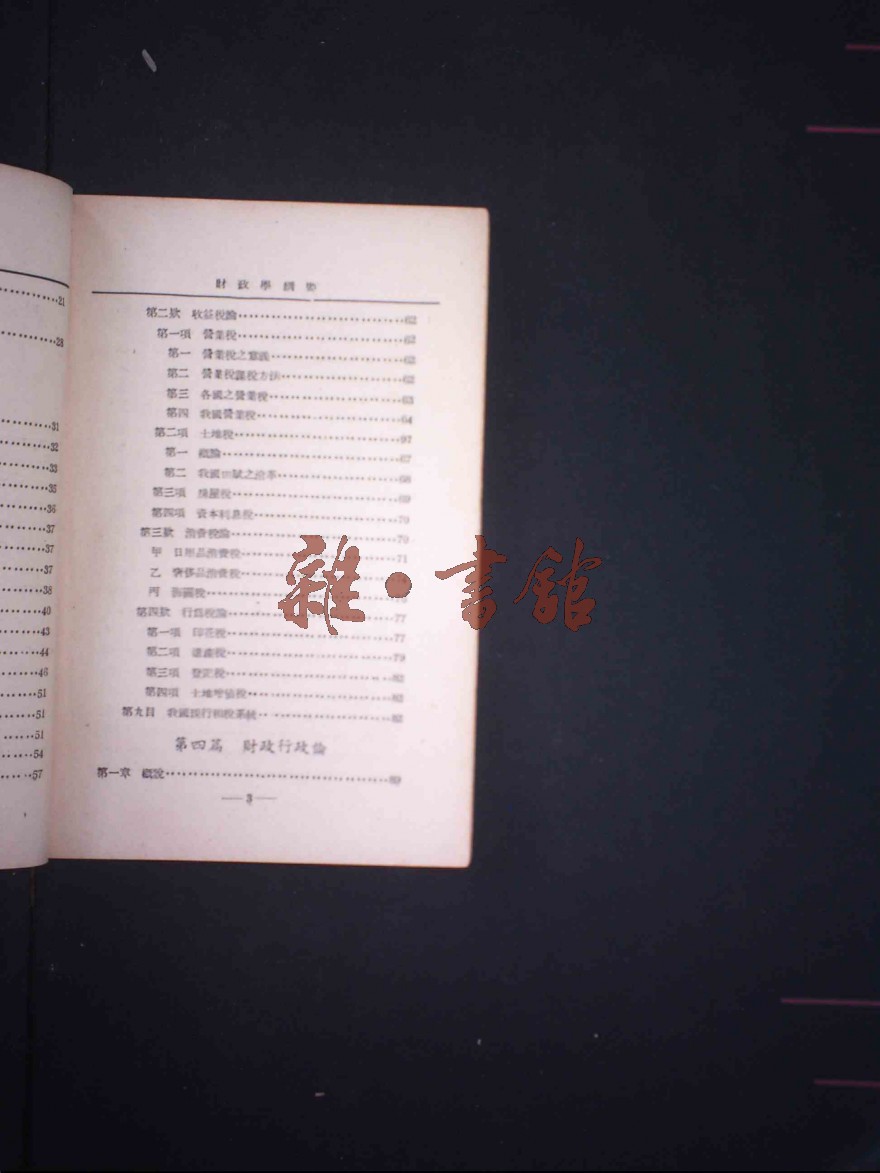 21
28
31
32
33
35
36
37
37
37
38
40
43
44
46
51
51
51
54
57
財政學綱要
第二款 收益稅論 62
第一項 營業稅 62
第一 營業稅之意義 62
第二 營業稅課稅方法 62
第三 各國之營業稅 63
第四 我國營業稅 64
第二項 土地稅 67
第一 概論 67
第二 我國田賦之沿革 68
第三項 房屋稅 69
第四項 資本利息稅 70
第三款 消費稅論 70
甲 日用品消費稅 71
乙 奢侈品消費稅
丙 關稅
第四款 行爲稅論 77
第一項 印花稅 77
第二項 遺產稅 79
第三項 登記稅 82
第四項 土地增值稅 82
第九目 我國現行租稅系統 83
第四篇 財政行政論
第一章 概說 89
— 3 —
雜·書館